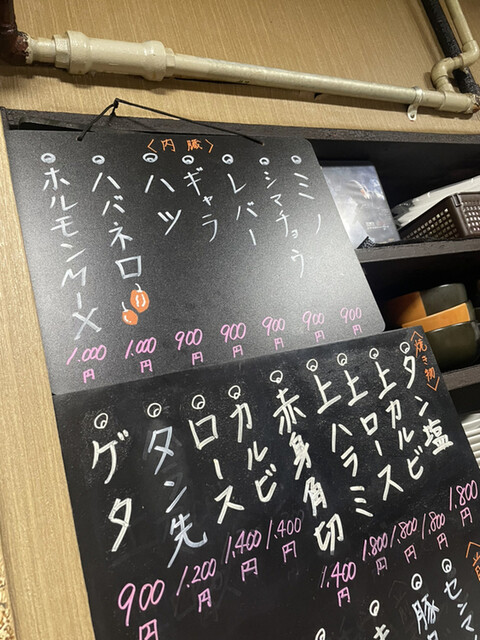 〈内臓〉
ミノ 900円
シマチョウ 900円
レバー 900円
ギャラ 900円
ハツ 900円
ハバネロ 1.000円
ホルモンMIX 1.000円
〈焼き物〉
タン塩 1.800円
上カルビ 1.800円
上ロース 1.800円
上ハラミ 1.800円
赤身角切 1.400円
カルビ 1.400円
ロース 1.400円
タン先 1.200円
ゲタ 900円
センマ
豚